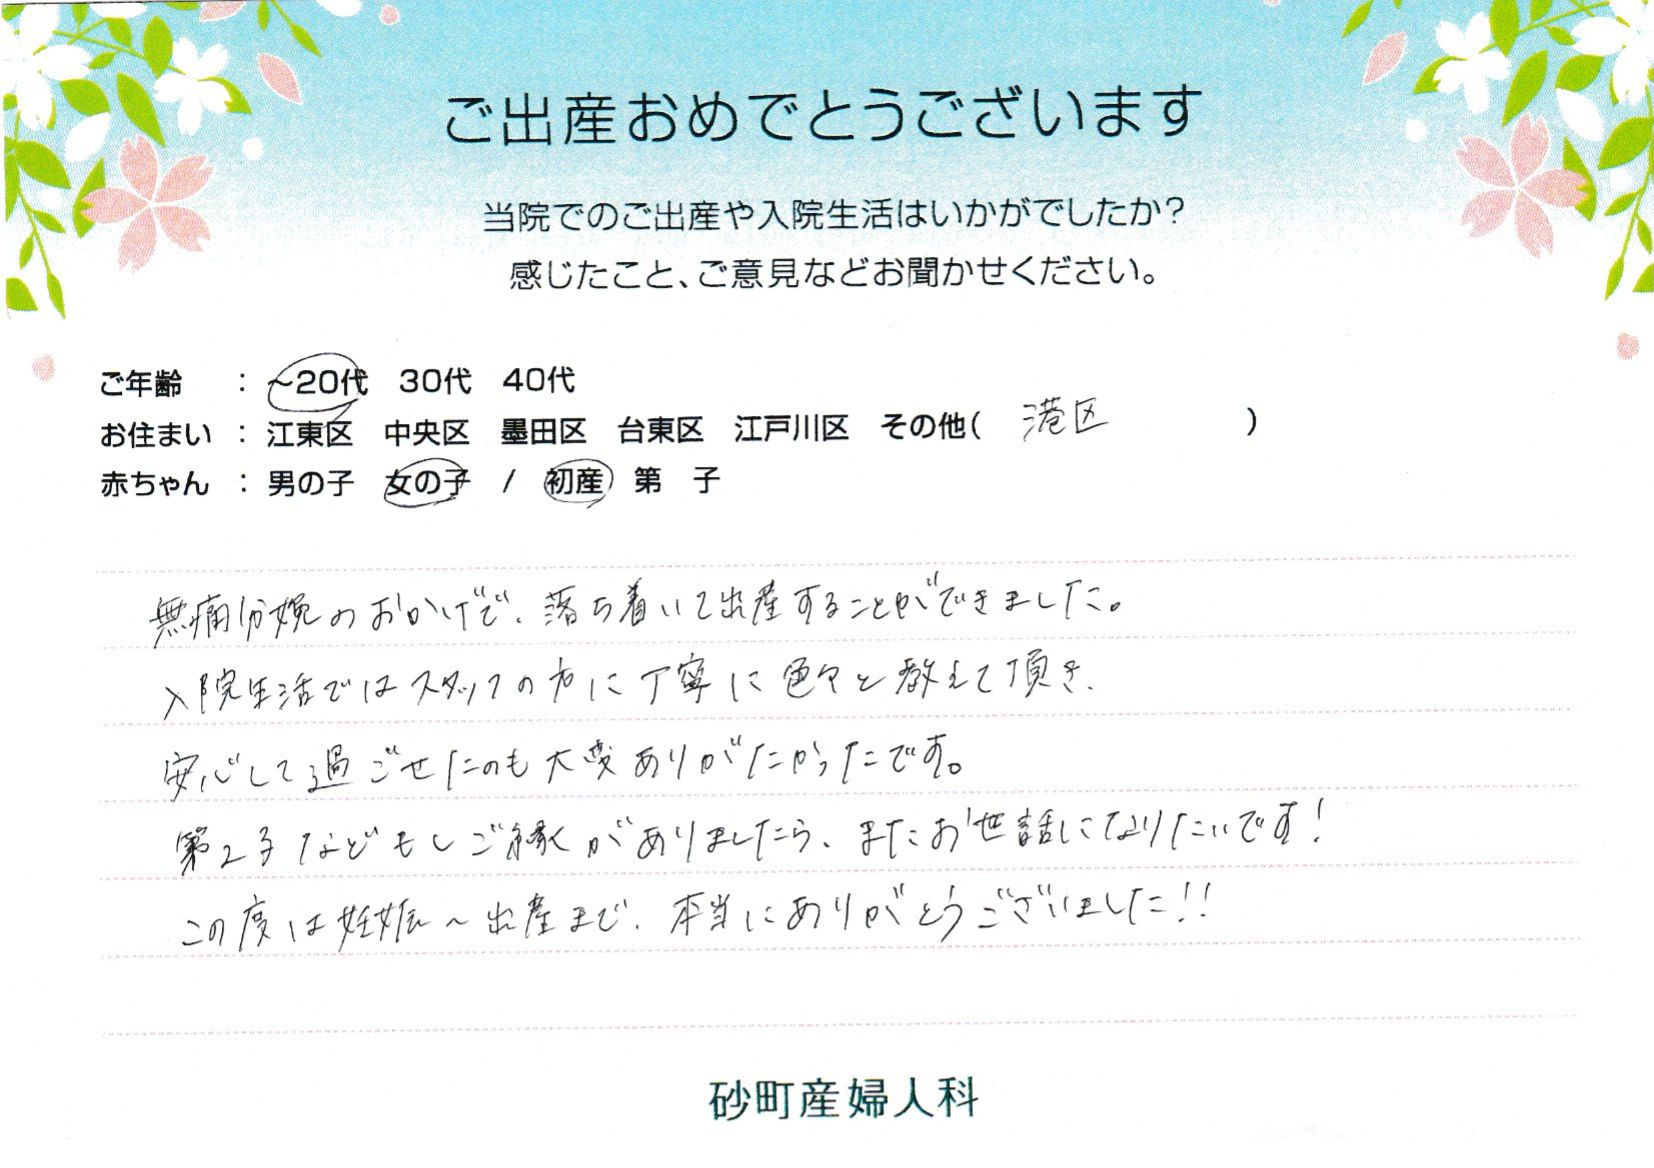 ご出産おめでとうございます
当院でのご出産や入院生活はいかがでしたか?
感じたこと、ご意見などお聞かせください。
ご年齢 : ~20代 30代 40代
お住まい : 江東区 中央区 墨田区 台東区 江戸川区 その他( 港区 )
赤ちゃん : 男の子 女の子 / 初産 第 子
無痛分娩のおかげで、落ち着いて出産することができました。
入院生活ではスタッフの方に丁寧に色々と教えて頂き、
安心して過ごせたのも大変ありがたかったです。
第2子などもしご縁がありましたら、またお世話になりたいです!
この度は妊娠~出産まで、本当にありがとうございました!!
砂町産婦人科